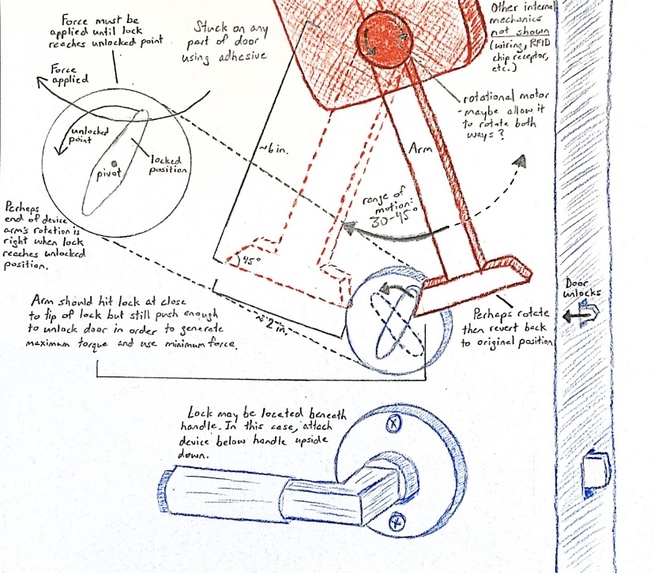 Force must be
applied until lock
reaches unlocked point
Stuck on any
part of door
using adhesive
Other internal
mechanics
not shown
(wiring, RFID
chip receptor,
etc.)
Force
applied
unlocked
point
locked
position
pivot
~6 in.
Arm
rotational motor
-maybe allow it
to rotate both
ways?
range of
motion:
30-45°
45°
Perhaps
end of device
arm's rotation is
right when lock
reaches unlocked
position.
~2 in.
Door
unlocks
Arm should hit lock at close
to tip of lock but still push enough
to unlock door in order to generate
maximum torque and use minimum force.
Perhaps rotate
then revert back
to original position
Lock may be located beneath
handle. In this case, attach
device below handle upside
down.